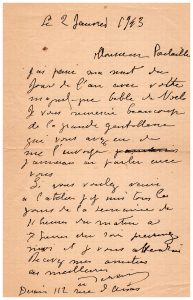 Le 2 Janvier 1943
Monsieur
J'ai passé ma nuit du
Jour de l'an avec votre
magnifique bible de Noël
Je vous remercie beaucoup
de la grande gentillesse
que vous avez eu de
me l'envoyer
j'aimerais en parler avec
vous
Si vous voulez venir
à l'atelier j'y suis tous les
jours de la semaine de
heures du matin à
7 heures du soir
moi et je vous
Recevez mes amitiés
les meilleures
Derain 112 rue d'